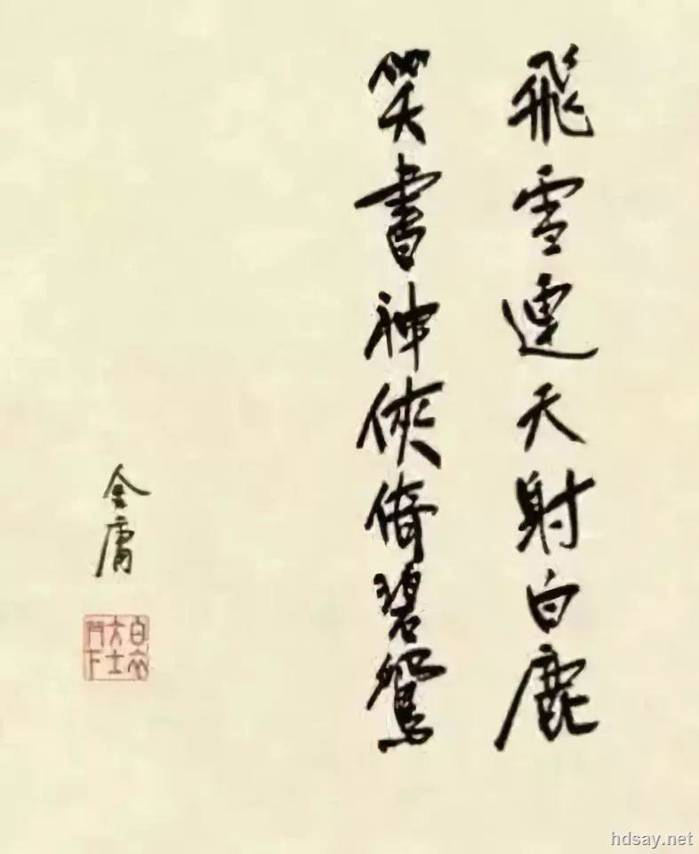 飛雪連天射白鹿
笑書神俠倚碧鴛
金庸
hdsay.net